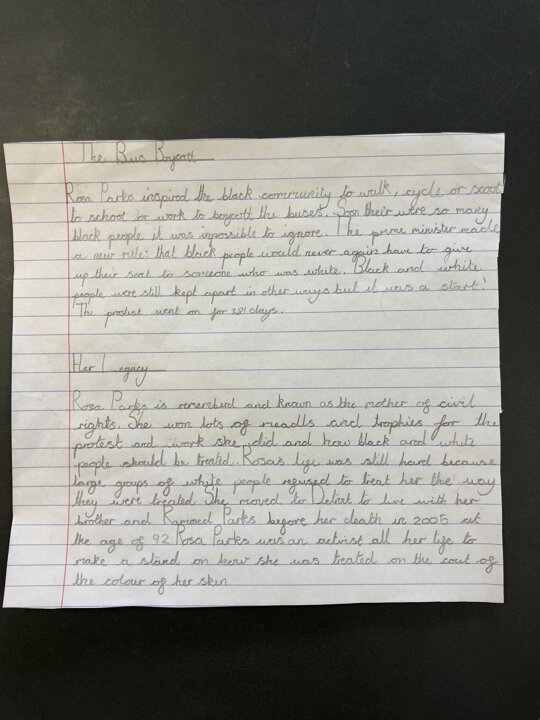 The Bus Boycott
Rosa Parks inspired the black community to walk, cycle or scoot
to school or work to boycott the buses. Soon their were so many
black people it was impossible to ignore. The prime minister made
a new rule: that black people would never again have to give
up their seat to someone who was white. Black and white
people were still kept apart in other ways but it was a start!
The protest went on for 381 days.
Her Legacy
Rosa Parks is rememberd and known as the mother of civil
rights. She won lots of meadls and trophies for the
protest and work she did and how black and white
people should be treated. Rosas life was still hard because
large groups of white people refused to treat her the way
they were treated. She moved to Detroit to live with her
brother and Raymond Parks before her death in 2005 at
the age of 92. Rosa Parks was an activist all her life to
make a stand on how she was treated on the cout of
the colour of her skin